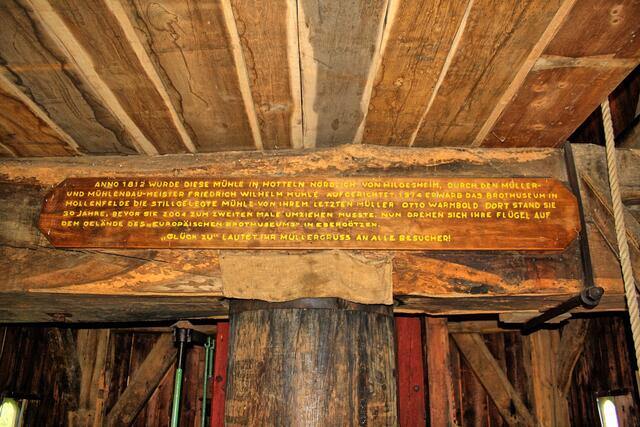 ANNO 1812 WURDE DIESE MÜHLE IN HOTTELN NÖRDLICH VON HILDESHEIM, DURCH DEN MÜLLER-
UND MÜHLENBAU-MEISTER FRIEDRICH WILHELM MÜHLE AUFGERICHTET. 1974 ERWARB DAS BROTMUSEUM IN
MOLLENFELDE DIE STILLGELEGTE MÜHLE VON IHREM LETZTEN MÜLLER OTTO WARMBOLD DORT STAND SIE
30 JAHRE, BEVOR SIE 2004 ZUM ZWEITEN MALE UMZIEHEN MUSSTE. NUN DREHEN SICH IHRE FLÜGEL AUF
DEM GELÄNDE DES „EUROPÄISCHEN BROTMUSEUMS" IN EBERGÖTZEN.
„GLÜCK ZU" LAUTET IHR MÜLLERGRUSS AN ALLE BESUCHER!